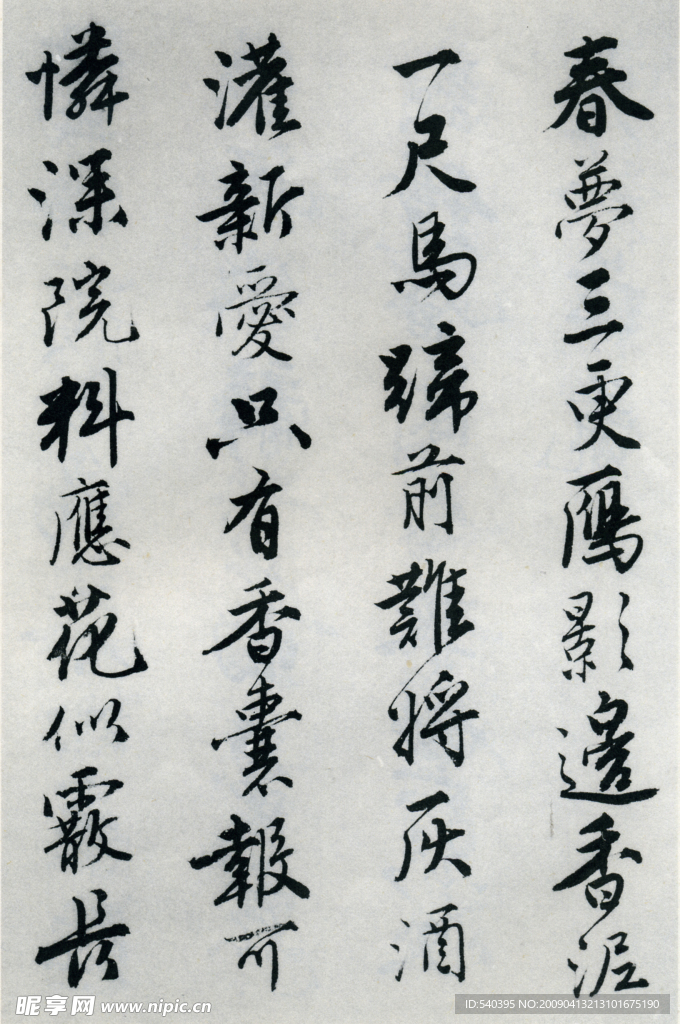 春夢三更鴈影邊香泥
一尺馬蹄前難將灰酒
灌新愛只有香囊報可
憐深院料應花似霰長
昵享网 www.nipic.cn
ID:540395 NO:20090413213101675190